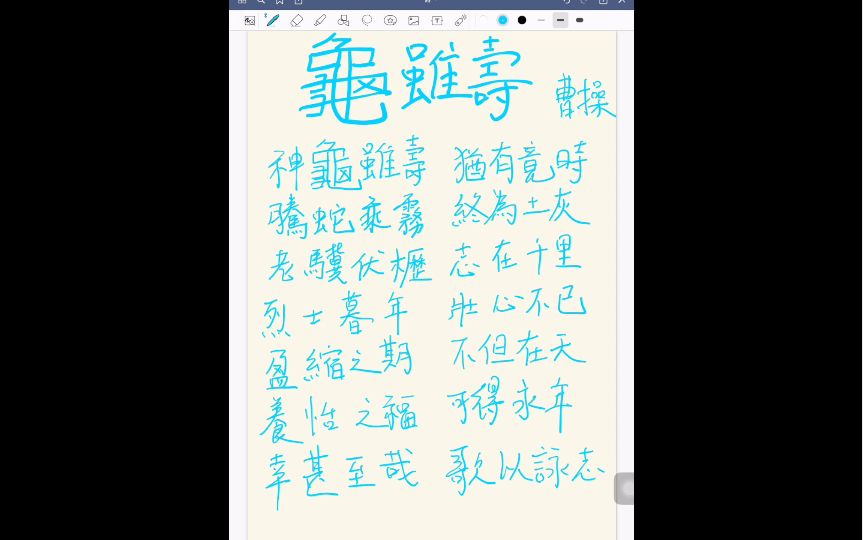 龜雖壽 曹操
神龜雖壽 猶有竟時
騰蛇乘霧 終為土灰
老驥伏櫪 志在千里
烈士暮年 壯心不已
盈縮之期 不但在天
養怡之福 可得永年
幸甚至哉 歌以詠志